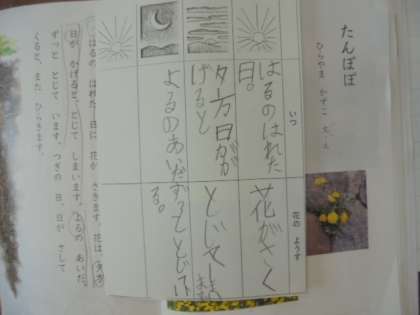 たんぽぽ
ひらやま かずこ 文・え
いつ
花の ようす
はるのはれた
日。
花がさく
夕方日がか
げると
とじてしま
よるのあいだ
ずっととじている。
はるの はれた 日に 花が さきます。花は、夕方
日が かげると、とじて しまいます。よるの あいだ、
ずっと とじて います。つぎの 日、日が さして
くると、また ひらきます。